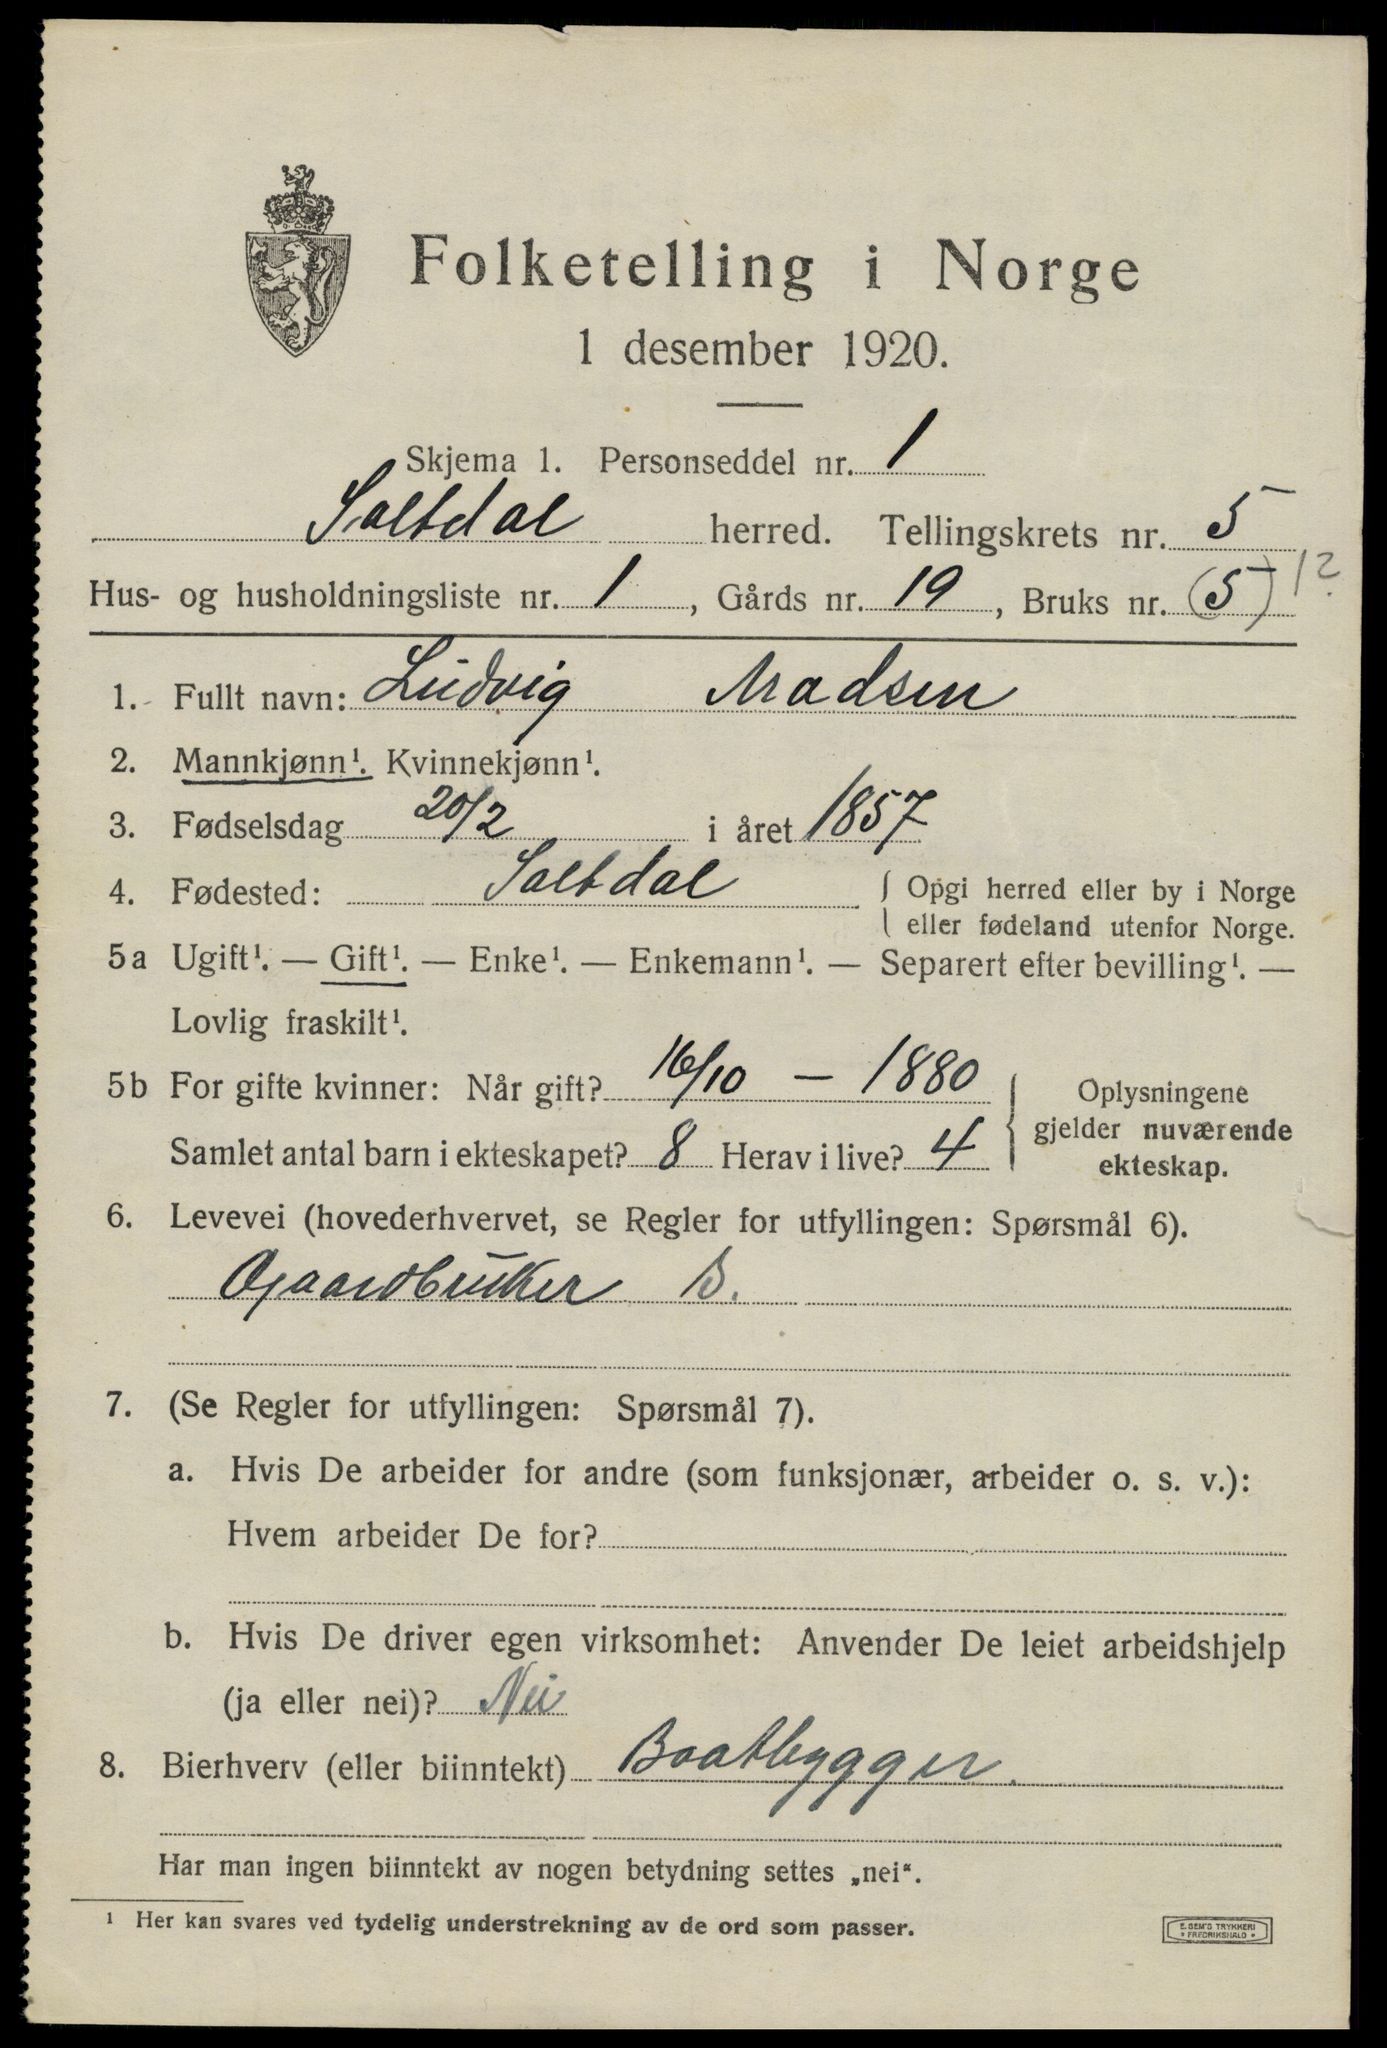 Folketelling i Norge
1 desember 1920.
Skjema 1. Personseddel nr. 1
Saltdal herred. Tellingskrets nr. 5
Hus- og husholdningsliste nr. 1, Gårds nr. 19, Bruks nr. (5) 1?
1. Fullt navn: Ludvig Madsen
2. Mannkjønn¹. Kvinnekjønn¹.
3. Fødselsdag 20/2 i året 1857
4. Fødested: Saltdal { Opgi herred eller by i Norge
eller fødeland utenfor Norge.
5a Ugift¹. — Gift¹. — Enke¹. — Enkemann¹. — Separert efter bevilling¹. —
Lovlig fraskilt¹.
5b For gifte kvinner: Når gift? 16/10 – 1880
Samlet antal barn i ekteskapet? 8 Herav i live? 4
} Oplysningene
gjelder nuværende
ekteskap.
6. Levevei (hovederhvervet, se Regler for utfyllingen: Spørsmål 6).
Gaardbruker B.
7. (Se Regler for utfyllingen: Spørsmål 7).
a. Hvis De arbeider for andre (som funksjonær, arbeider o. s. v.):
Hvem arbeider De for?
b. Hvis De driver egen virksomhet: Anvender De leiet arbeidshjelp
(ja eller nei)? Nei
8. Bierhverv (eller biinntekt) Baatbygger.
Har man ingen biinntekt av nogen betydning settes „nei“.
¹ Her kan svares ved tydelig understrekning av de ord som passer.
E. SEM'S TRYKKERI
* FREDRIKSHALD *